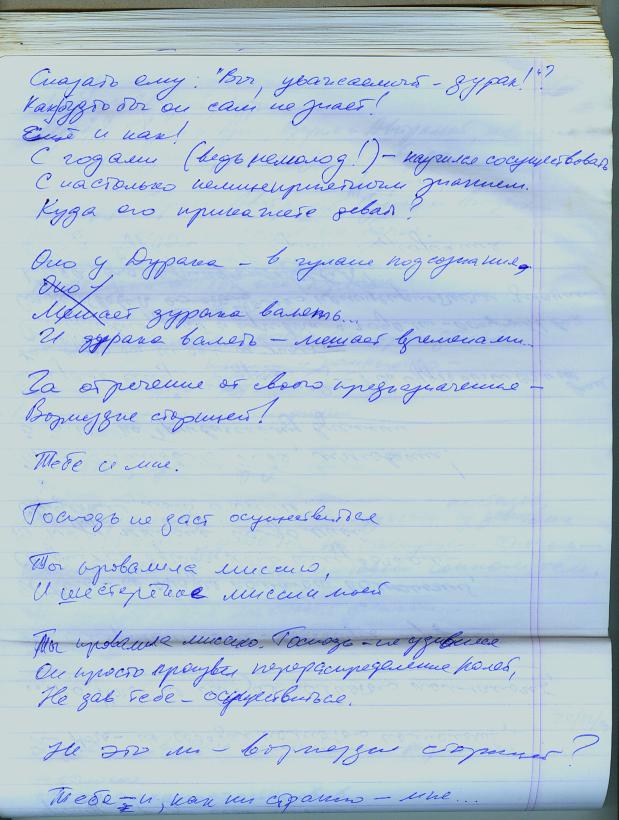 Сказать ему: "Вы, уважаемый - дурак!"?
Как будто бы он сам не знает!
Ещё и как!
С годами (ведь немолод!) - научился сосуществовать
С настолько нелицеприятным знанием.
Куда его прикажете девать?
Оно у Дурака - в чулане подсознания,
Оно -
Мешает дурака валять...
И дурака валять - мешает временами...
За отречение от своего предназначения -
Возмездие сторицей!
Тебе и мне.
Господь не даст осуществиться
Ты провалила миссию,
И шестерёнкою миссии моей
Ты провалила миссию. Господь - не удивился
Он просто произвёл перераспределение ролей,
Не дав тебе - осуществиться.
Не это ли - возмездие сторицей?
Тебе - и, как ни странно - мне...